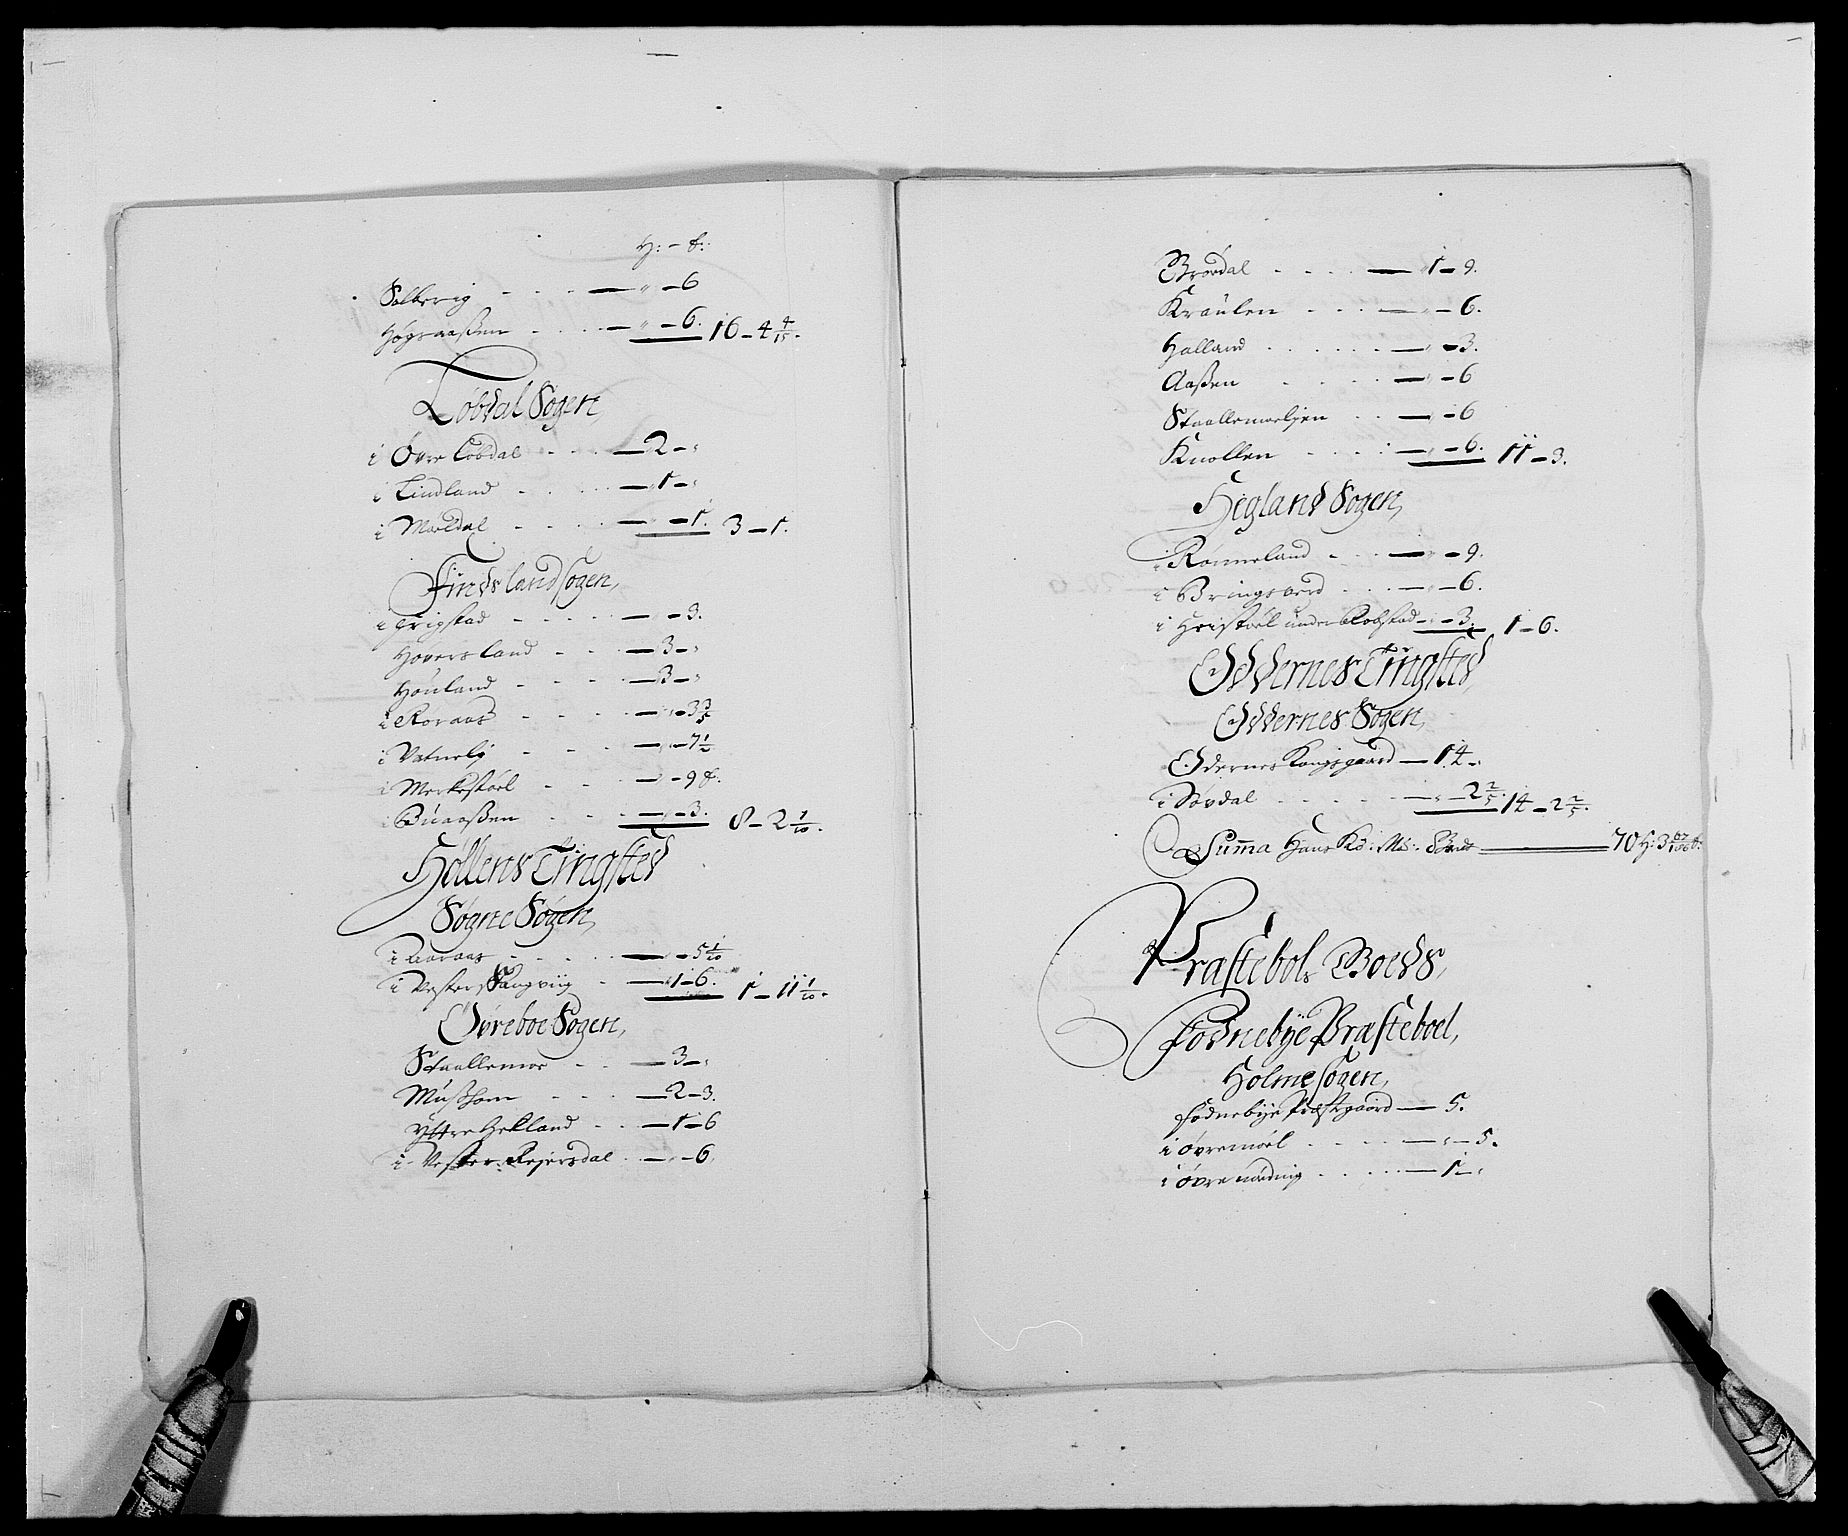 H: - ß:
Solberig - - - — " - 6
Høgsaaßen - - - — " - 6. 16 - 4 4/15.
Lobdal Sogen,
i Øvre Lobdal - - - — 2 - "
i Lindland - - - — 1 - "
i Moeldal - - - — " - 1. 3 - 1.
Findsland sogen,
i Trigstad - - - - — " - 3.
Hoversland - - - — 3 - "
Honland - - - — 3 - "
i Roraas - - - — " - 3 3/5
i Vatnelj - - - — " - 7 1/2
i Merkestøel - - - — " - 9 ß.
i Buaaßen - - - — " - 3. 8 - 2 1/10.
Hollens Tingsted
Søgne Sogen,
i Aaraas - - - — " - 5 1/10
i Vester Vangviig - — 1 - 6. 1 - 11 1/10.
Øvreboe Sogen,
Staallemoe - - — 3 - "
Mußhom - - - — 2 - 3.
Yttre Hekland - - — 1 - 6
i Vester Reiersdal - — " - 6.
Brørdal - - - — 1 - 9.
Kraulen - - - — " - 6.
Halland - - - — " - 3.
Aaßen - - - — " - 6
Staallemoeljen - - — " - 6
Knollen - - - — " - 6. 11 - 3.
Hegland Sogen,
i Rønneland - - - — " - 9.
i Bringsverd - - - — " - 6.
i Heistøel under Robstad - " - 3. 1 - 6.
Oddernes Tingsted,
Oddernes Sogen,
Odernes Kongsgaard — 14 - "
i Søvdal - - - — " - 2 2/5. 14 - 2 2/5.
Summa Hans Ko: Ma: — 70 H: 3 67/100 ß:
Præstebols Goeds,
Fodnebye Præsteboel,
Holme sogen,
Fodnebye Præstgaard — 5.
i Øvremoel - - - — " - 5.
i Øvre nøding - - - — 1 - "